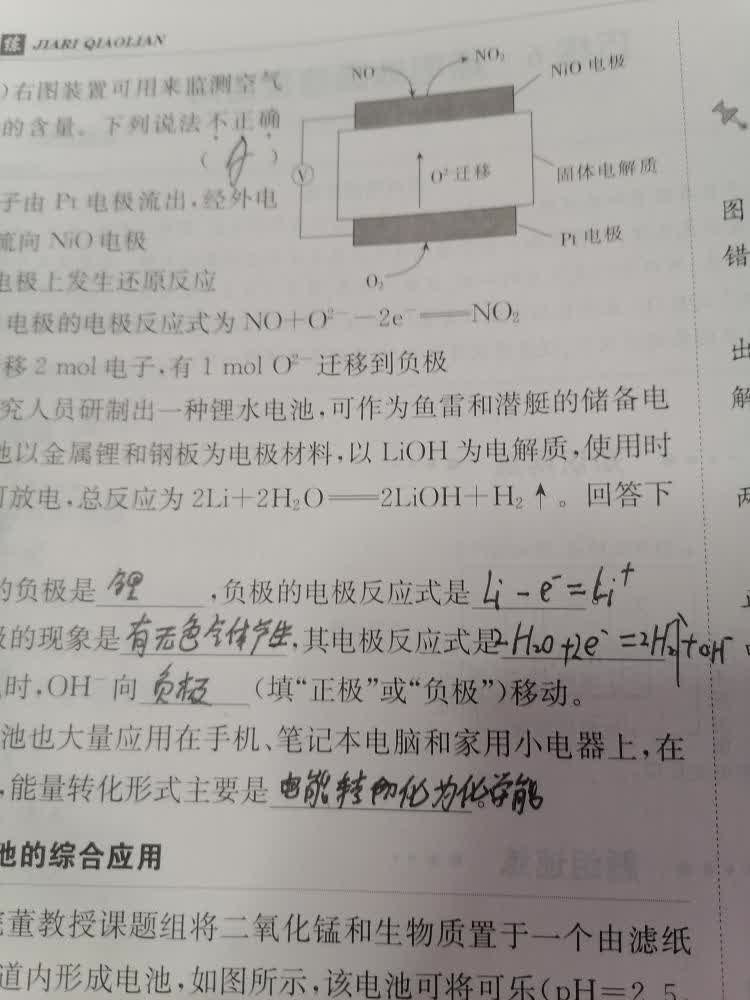 练 JIARI QIAOLIAN
)右图装置可用来监测空气
的含量。下列说法不正确
( A )
子由 Pt 电极流出,经外电
流向 NiO 电极
电极上发生还原反应
电极的电极反应式为 NO+O²⁻-2e⁻══NO₂
移 2 mol 电子,有 1 mol O²⁻迁移到负极
NO
NO₂
NiO 电极
V
O²⁻迁移
固体电解质
Pt 电极
O₂
究人员研制出一种锂水电池,可作为鱼雷和潜艇的储备电
池以金属锂和钢板为电极材料,以 LiOH 为电解质,使用时
可放电,总反应为 2Li+2H₂O══2LiOH+H₂↑。回答下
的负极是 锂 ,负极的电极反应式是 Li-e⁻=Li⁺
极的现象是有无色气体产生,其电极反应式是2H₂O+2e⁻=2H₂↑+OH⁻
时,OH⁻向 负极 (填“正极”或“负极”)移动。
池也大量应用在手机、笔记本电脑和家用小电器上,在
,能量转化形式主要是 电能转化为化学能。
池的综合应用
董教授课题组将二氧化锰和生物质置于一个由滤纸
道内形成电池,如图所示,该电池可将可乐(pH=2.5
图
错
出
解
两